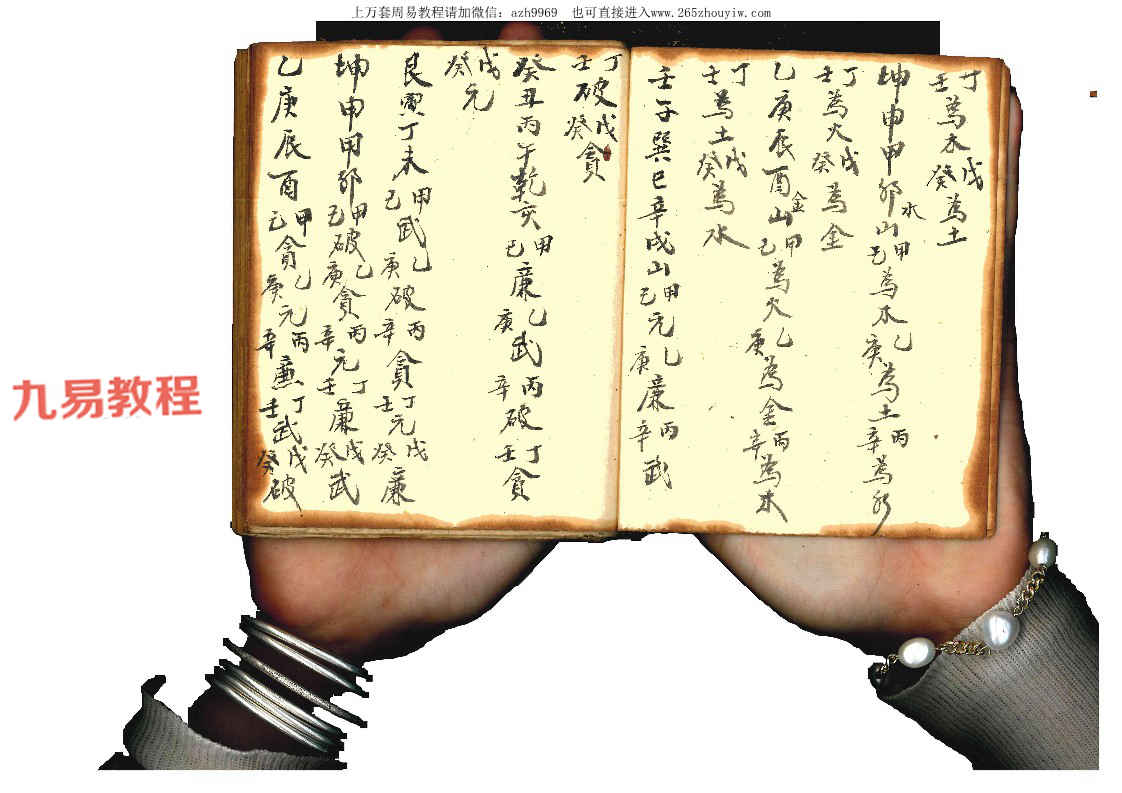 上万套周易教程请加微信：azh9969 也可直接进入www.265zhouyiw.com
丁壬為木戊癸為土
坤申甲卯山水甲己為木乙庚為土丙辛為水
丁壬為火戊癸為金
乙庚辰酉山金甲己為火乙庚為金丙辛為木
丁壬為土戊癸為水
壬子巽巳辛戌山甲己元乙庚廉丙辛武
丁壬破戊癸貪
癸丑丙午乾亥甲己廉乙庚武丙辛破丁壬貪
戊癸元
艮寅丁未甲己武乙庚破丙辛貪丁壬元戊癸廉
坤申甲卯甲己破乙庚貪丙辛元丁壬廉戊癸武
乙庚辰酉甲己貪乙庚元丙辛廉丁壬武戊癸破
九易教程